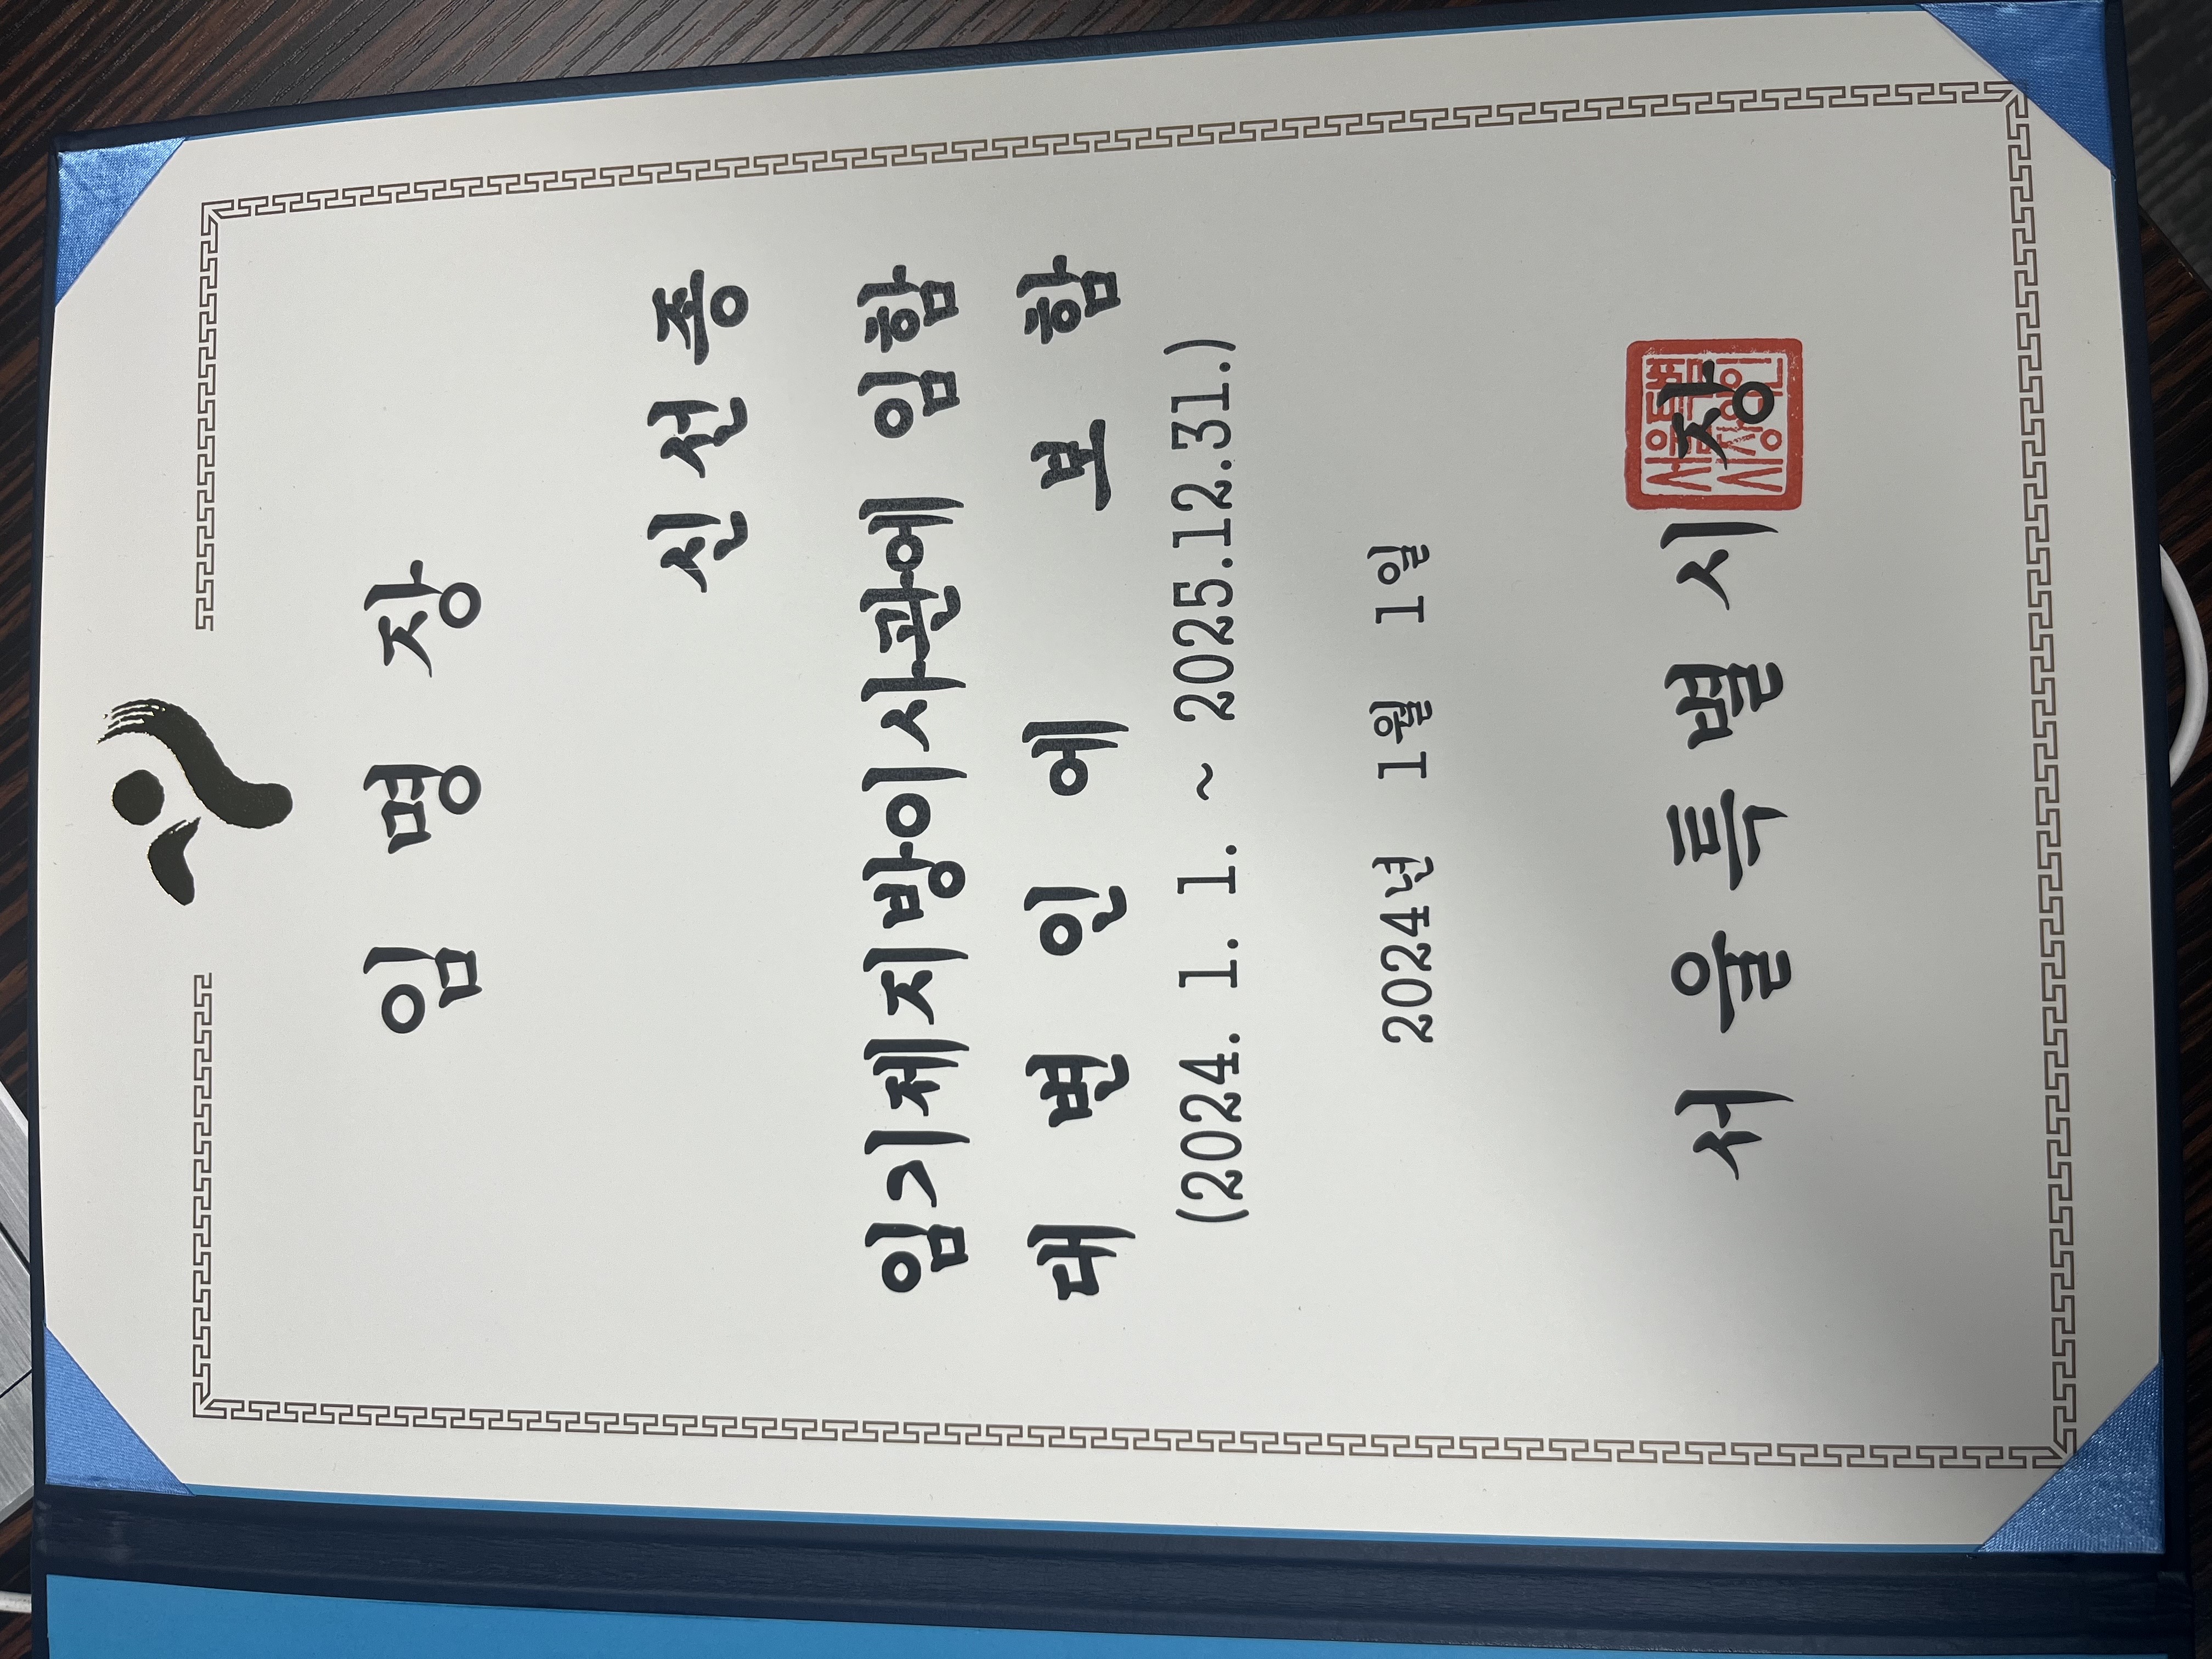 임 명 장
신 선 종
임기제지방이사관에 임함
대 변 인 에 보 함
(2024. 1. 1. ~ 2025.12.31.)
2024년 1월 1일
서 울 특 별 시 장